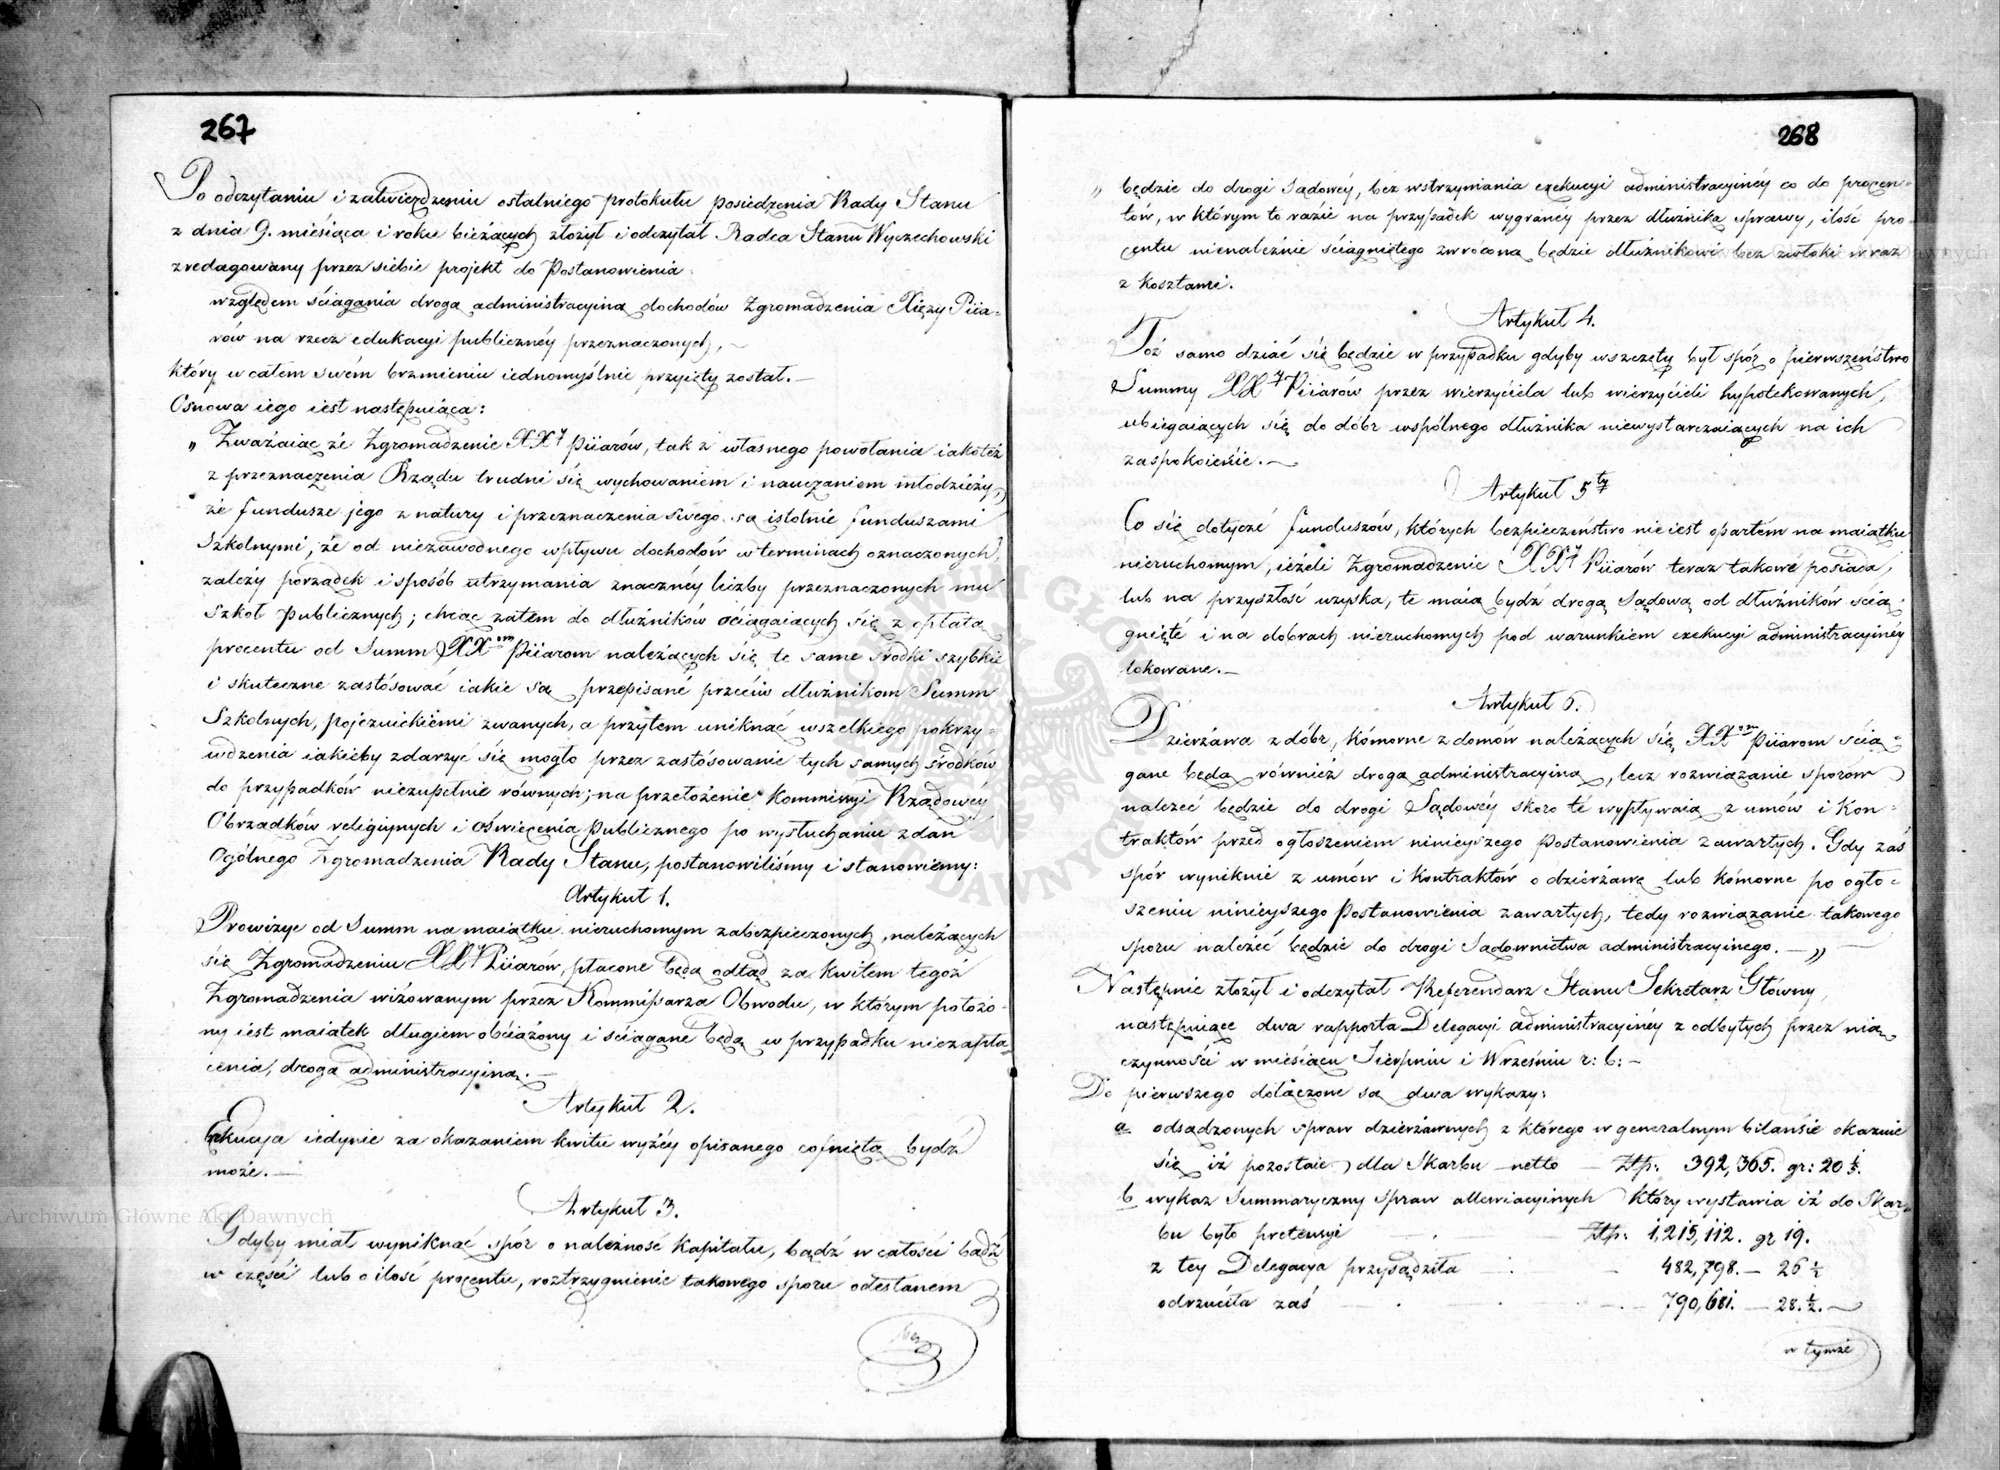 267
Po odczytaniu i zatwierdzeniu ostatniego protokułu posiedzenia Rady Stanu
z dnia 9. miesiąca i roku bieżących złożył i odczytał Radca Stanu Wyczechowski
zredagowany przez siebie projekt do Postanowienia:
względem ściągania drogą administracyiną dochodów Zgromadzenia Xięży Piia-
rów na rzecz edukacyi publicznéy przeznaczonych,
który w całem swém brzmieniu iednomyślnie przyięty został.—
Osnowa iego iest następuiąca:
„ Zważaiąc że Zgromadzenie XX⁊ Piiarów, tak z własnego powołania iakoteż
z przeznaczenia Rządu trudni się wychowaniem i nauczaniem młodzieży,
że fundusze jego z natury i przeznaczenia swego są istotnie funduszami
szkolnymi, że od niezawodnego wpływu dochodów w terminach oznaczonych,
zależy porządek i sposób utrzymania znacznéy liczby przeznaczonych mu
szkół publicznych; chcąc zatem do dłużników ociągaiących się z opłatą
procentu od Summ XX^om Piiarom należących się te same środki szybkie
i skuteczne zastósować iakie są przepisane przeciw dłużnikom Summ
Szkolnych, pojezuickiémi zwanych, a przytem uniknąć wszelkiego pokrzy-
wdzenia iakieby zdarzyć się mogło przez zastósowanie tych samych środków
do przypadków niezupełnie równych; na przełożenie Kommissyi Rządowéy
Obrządków religiynych i oświecenia publicznego po wysłuchaniu zdań
Ogólnego Zgromadzenia Rady Stanu, postanowiliśmy i stanowiemy:
Artykuł 1.
Prowizye od Summ na maiątku nieruchomym zabezpieczonych, należących
się Zgromadzeniu XX⁊ Piiarów, płacone będą odtąd za kwitem tegoż
Zgromadzenia wizowanym przez Kommissarza Obwodu, w którym położo-
ny iest maiątek długiem obciążony i ściągane będą w przypadku niezapła-
cenia, drogą administracyiną.—
Artykuł 2.
Exekucya iedynie za okazaniem kwitu wyżéy opisanego cofnięta bydź
może.—
Artykuł 3.
Gdyby miał wyniknąć spór o należność kapitału, bądź w całości bądź
w części lub o ilość procentu, roztrzygnienie takowego sporu odesłanem
268
„ będzie do drogi sądowéy, bez wstrzymania exekucyi administracyinéy co do procen-
tów, w którym to razie na przypadek wygranéy przez dłużnika sprawy, ilość pro-
centu nienależnie ściągniętego zwrócona będzie dłużnikowi bez zwłoki wraz
z kosztami.
Artykuł 4.
Toż samo dziać się będzie w przypadku gdyby wszczęty był spór o pierwszeństwo
Summy XX⁊ Piiarów przez wierzyciela lub wierzycieli hypotekowanych,
ubiegaiących się do dóbr wspólnego dłużnika niewystarczaiących na ich
zaspokoienie.—
Artykuł 5^ty
Co się dotycze funduszów, których bezpieczeństwo nie iest opartém na maiątku
nieruchomym, ieżeli Zgromadzenie XX⁊ Piiarów teraz takowe posiada,
lub na przyszłość uzyska, te maią bydź drogą sądową od dłużników ścią-
gnięte i na dobrach nieruchomych pod warunkiem exekucyi administracyinéy
lokowane.—
Artykuł 6.
Dzierżawa z dóbr, kómorne z domów należących się XX^om Piiarom ścią-
gane będą również drogą administracyiną, lecz rozwiązanie sporów
należeć będzie do drogi Sądowéy skoro te wypływaią z umów i kon-
traktów przed ogłoszeniem ninieyszego Postanowienia zawartych. Gdy zaś
spór wyniknie z umów i kontraktów o dzierżawę lub kómorne po ogło-
szeniu ninieyszego Postanowienia zawartych, tedy rozwiązanie takowego
sporu należeć będzie do drogi Sądownictwa administracyinego.—„
Następnie złożył i odczytał Referendarz Stanu Sekretarz Główny,
następuiące dwa rapporta Delegacyi administracyinéy z odbytych przez nią
czynności w miesiącu Sierpniu i Wrześniu r: b:—
Do pierwszego dołączone są dwa wykazy:
a odsądzonych spraw dzierżawnych z którego w generalnym bilansie okazuie
się iż pozostaie dla Skarbu netto — Złp: 392,365. gr: 20 1/3.
b wykaz Summaryczny spraw allewiacyinych który wystawia iż do Skar-
bu było pretensyi — Złp: 1,215,112. gr 19.
z tey Delegacya przysądziła — 482,798.— 26 1/2
odrzuciła zaś — 790,681.— 28. 1/2.—
w tymże
Archiwum Główne Akt Dawnych